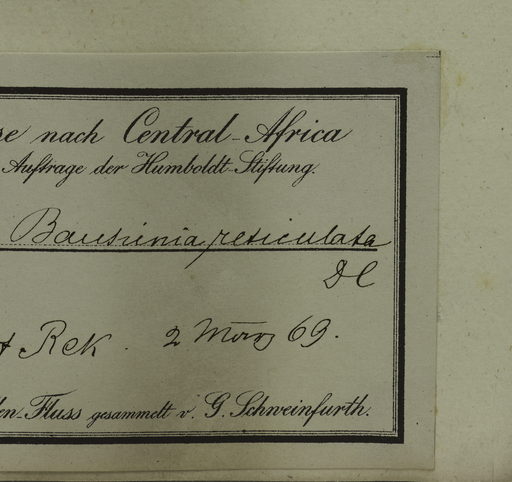 se nach Central-Africa
Auftrage der Humboldt-Stiftung.
Bauhinia reticulata
DC
Rek. 2 März 69.
en-Fluss gesammelt v. G. Schweinfurth.